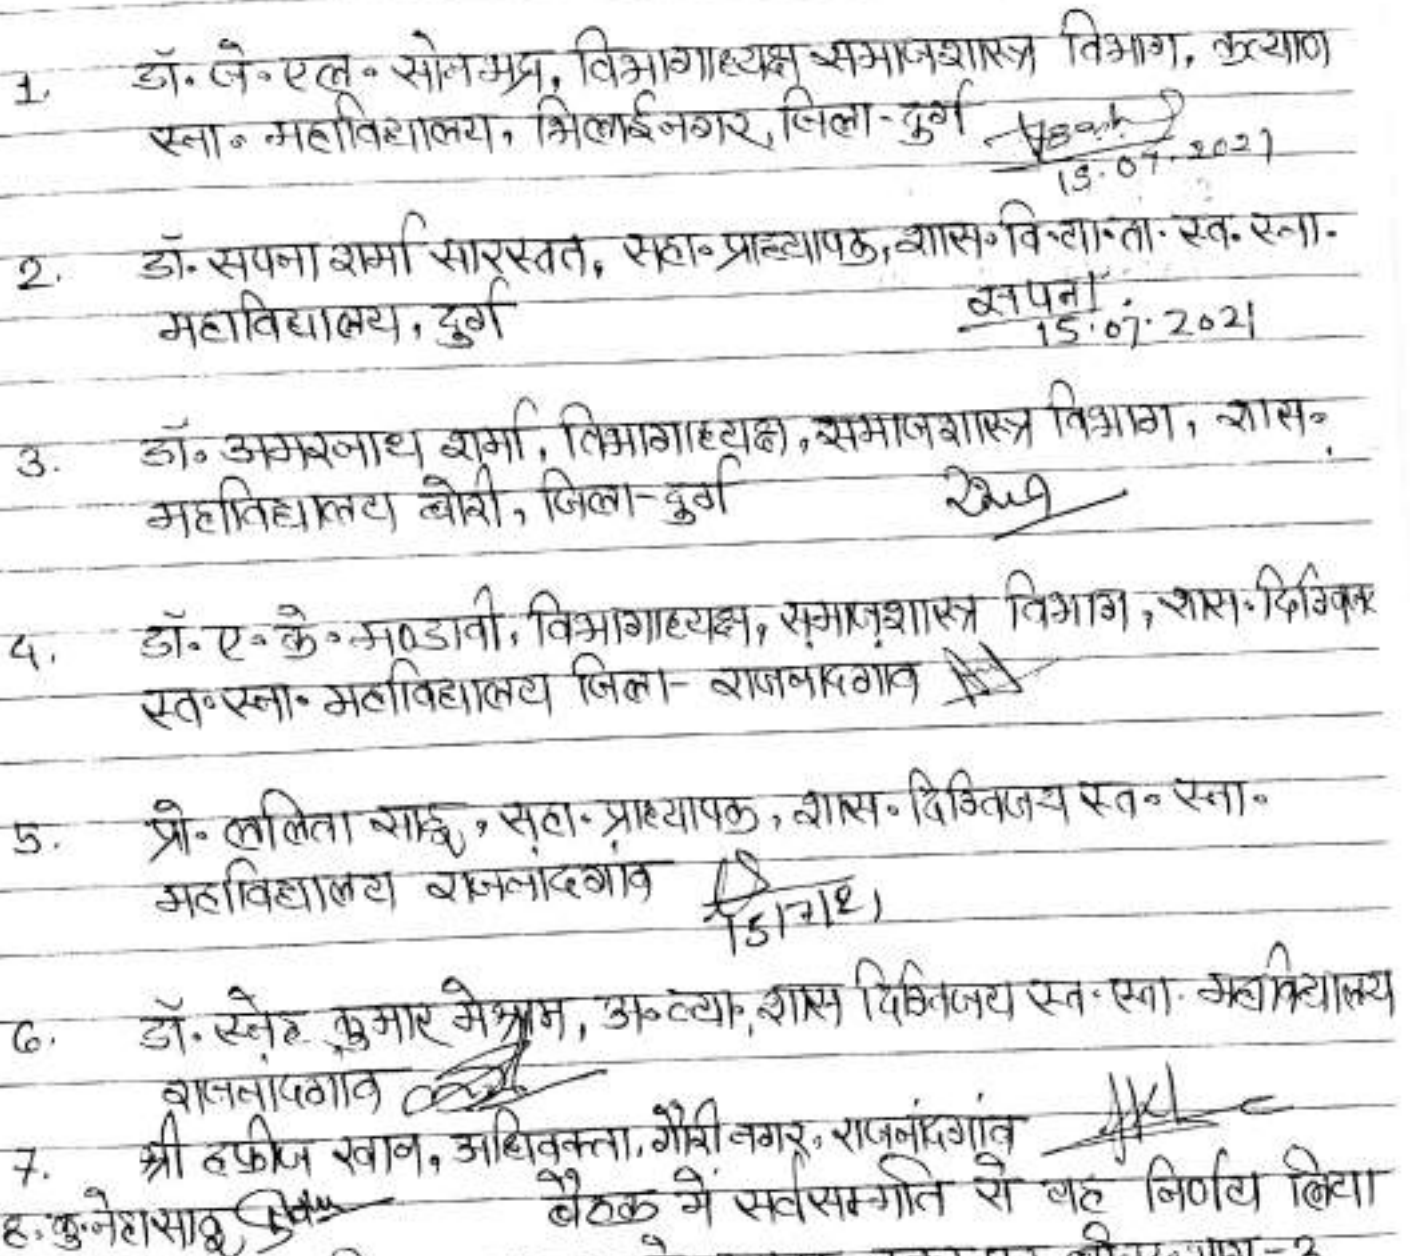 1. डॉ. जे. एल. सोनभद्र, विभागाध्यक्ष समाजशास्त्र विभाग, कल्याण
स्ना. महाविद्यालय, भिलाईनगर, जिला-दुर्ग
15.07.2021
2. डॉ. सपना शर्मा सारस्वत, सहा. प्राध्यापक, शास. वि.या.ता. स्व. स्ना.
महाविद्यालय, दुर्ग सपना
15.07.2021
3. डॉ. अमरनाथ शर्मा, विभागाध्यक्ष, समाजशास्त्र विभाग, शास.
महाविद्यालय बोरी, जिला-दुर्ग
4. डॉ. ए. के. मण्डावी, विभागाध्यक्ष, समाजशास्त्र विभाग, शास. दिग्विजय
स्व. स्ना. महाविद्यालय जिला- राजनांदगांव
5. प्रो. ललिता साहू, सहा. प्राध्यापक, शास. दिग्विजय स्व. स्ना.
महाविद्यालय राजनांदगांव
15/7/21
6. डॉ. स्नेह कुमार मेश्राम, अ. व्या., शास दिग्विजय स्व. स्ना. महाविद्यालय
राजनांदगांव
7. श्री हफीज खान, अधिवक्ता, गौरी नगर, राजनांदगांव
8. कु. नेहा साहू बैठक में सर्वसम्मति से यह निर्णय लिया